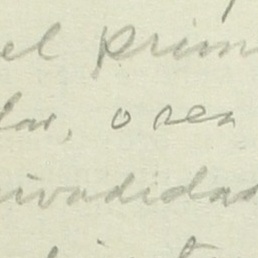 el prim
lar, o sea
ividida